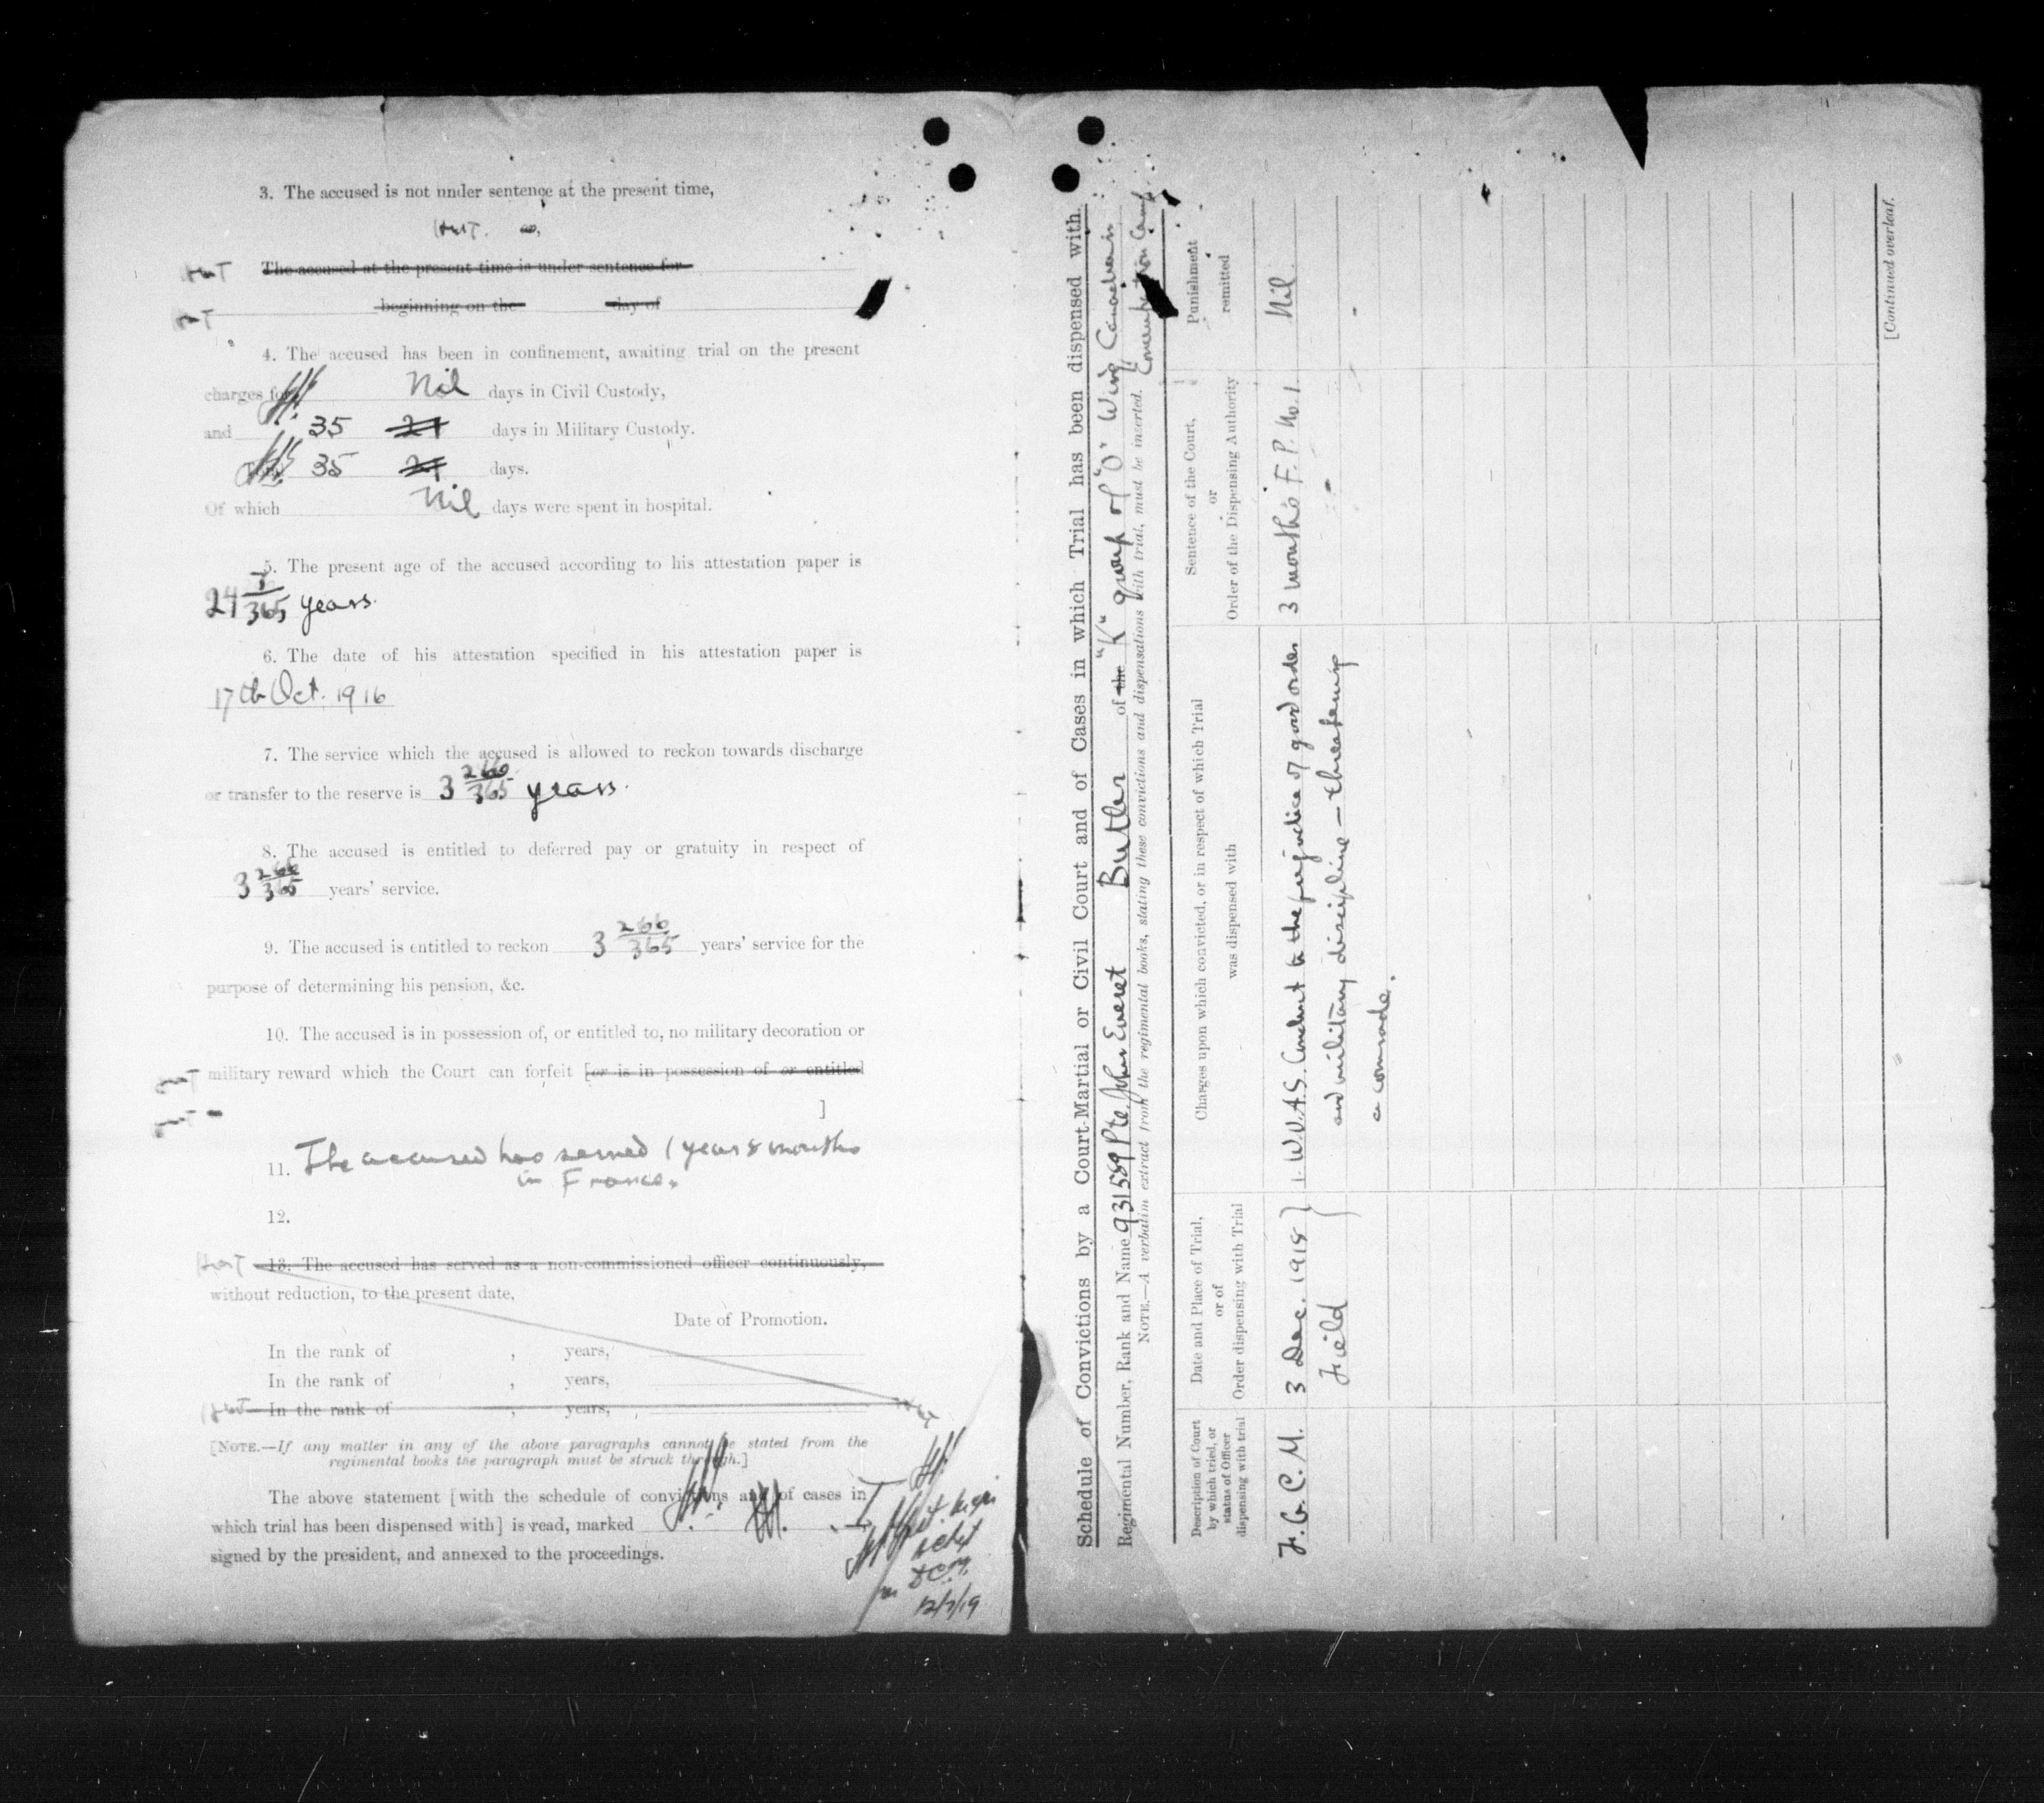 3. The accused is not under sentence at the present time,
The accused at the present time is under sentence for
beginning on the day of
4. The accused has been in confinement, awaiting trial on the present
charges for Nil days in Civil Custody,
and 35 21 days in Military Custody.
35 21 days.
Of which Nil days were spent in hospital.
5. The present age of the accused according to his attestation paper is
24 /365 years.
6. The date of his attestation specified in his attestation paper is
17th Oct. 1916
7. The service which the accused is allowed to reckon towards discharge
or transfer to the reserve is 3 266/365 years.
8. The accused is entitled to deferred pay or gratuity in respect of
3 266/365 years' service.
9. The accused is entitled to reckon 3 266/365 years' service for the
purpose of determining his pension, &c.
10. The accused is in possession of, or entitled to, no military decoration or
military reward which the Court can forfeit [or is in possession of or entitled
]
11. The accused has served 1 year 8 months
in France.
12.
13. The accused has served as a non-commissioned officer continuously,
without reduction, to the present date.
Date of Promotion.
In the rank of , years,
In the rank of , years,
In the rank of , years,
[NOTE.—If any matter in any of the above paragraphs cannot be stated from the
regimental books the paragraph must be struck through.]
The above statement [with the schedule of convictions and of cases in
which trial has been dispensed with] is read, marked
signed by the president, and annexed to the proceedings.
12/7/19
Schedule of Convictions by a Court-Martial or Civil Court and of Cases in which Trial has been dispensed with.
Regimental Number, Rank and Name 931589 Pte. John Everet Butler of the "K" group of "O" Wing Canadian
Camp
NOTE.—A verbatim extract from the regimental books, stating these convictions and dispensations with trial, must be inserted.
Description of Court
by which tried, or
status of Officer
dispensing with trial
Date and Place of Trial,
or of
Order dispensing with Trial
Charges upon which convicted, or in respect of which Trial
was dispensed with
Sentence of the Court,
or
Order of the Dispensing Authority
Punishment
remitted
F. G. C. M. 3 Dec. 1918 1. W.O.A.S. Conduct to the prejudice of good order 3 months F. P. No. 1. Nil.
Field and military discipline — threatening
a comrade.
[Continued overleaf.